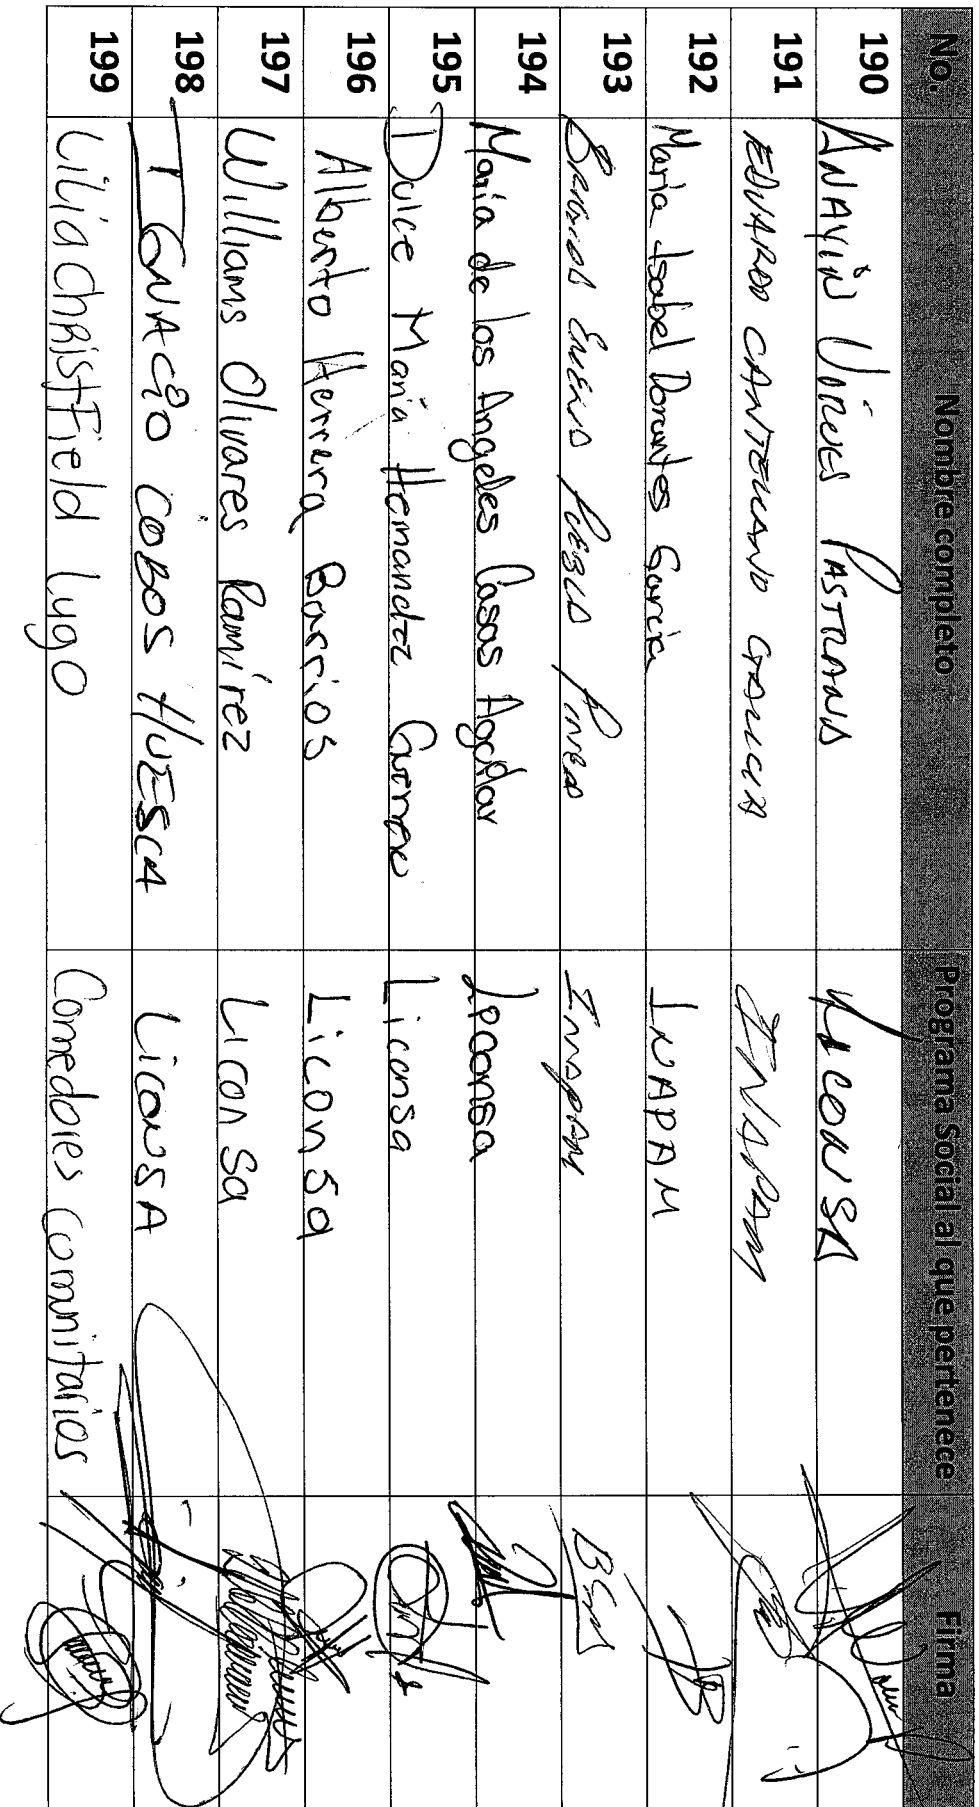 No. Nombre completo Programa Social al que pertenece Firma
190 ANAYIN PASTRANA LICONSA
191 EDUARDO CANTELLANO GARCIA INAPAM
192 Maria Isabel Dorantes Garcia INAPAM
193 PUEBLA PINEDA INAPAM
194 María de los Angeles Casas Aguilar Lponsa
195 Dulce María Hernandez Liconsa
196 Alberto Herrera Barrios Liconsa
197 Williams Olivares Ramírez Liconsa
198 IGNACiO COBOS HUESCA LiCONSA
199 Lilia ChRistField Lugo Comedores Comunitarios